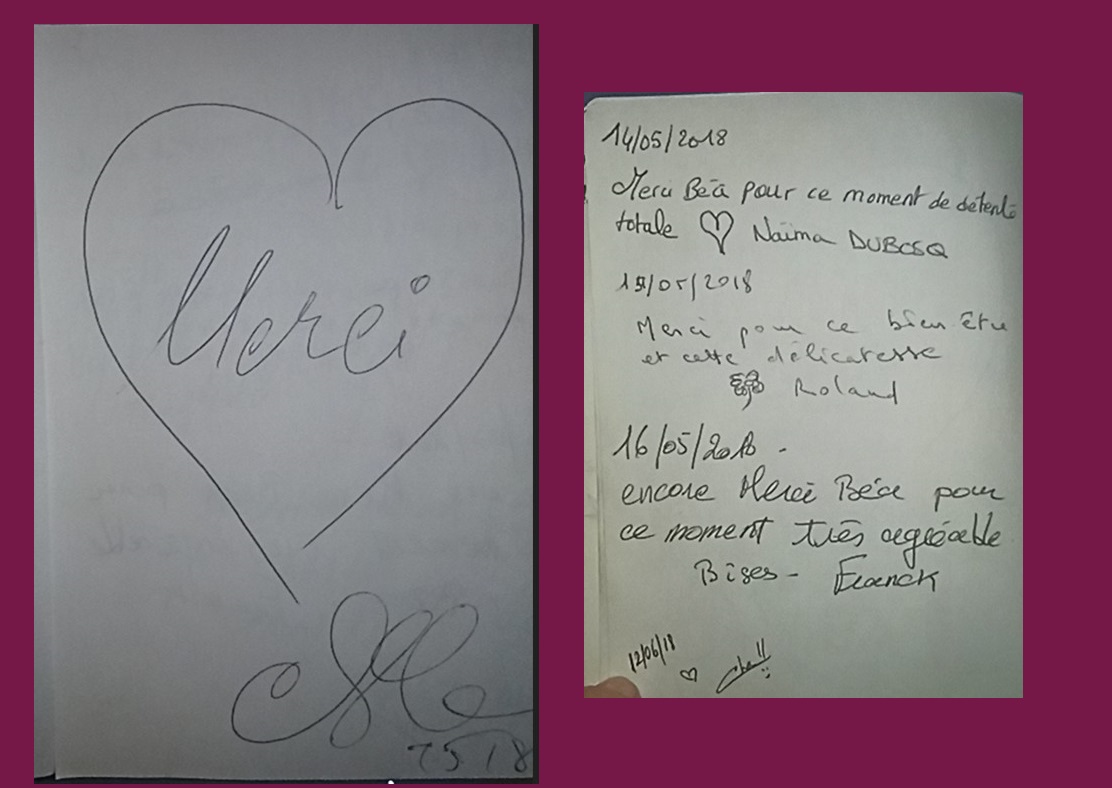 Merci
14/05/2018
Merci Béa pour ce moment de détente
totale Naïma DUBOSQ
/05/2018
Merci pour ce bien être
et cette délicatesse
Roland
16/05/2018 -
encore Merci Béa pour
ce moment très agréable
Bises - Franck
12/06/18